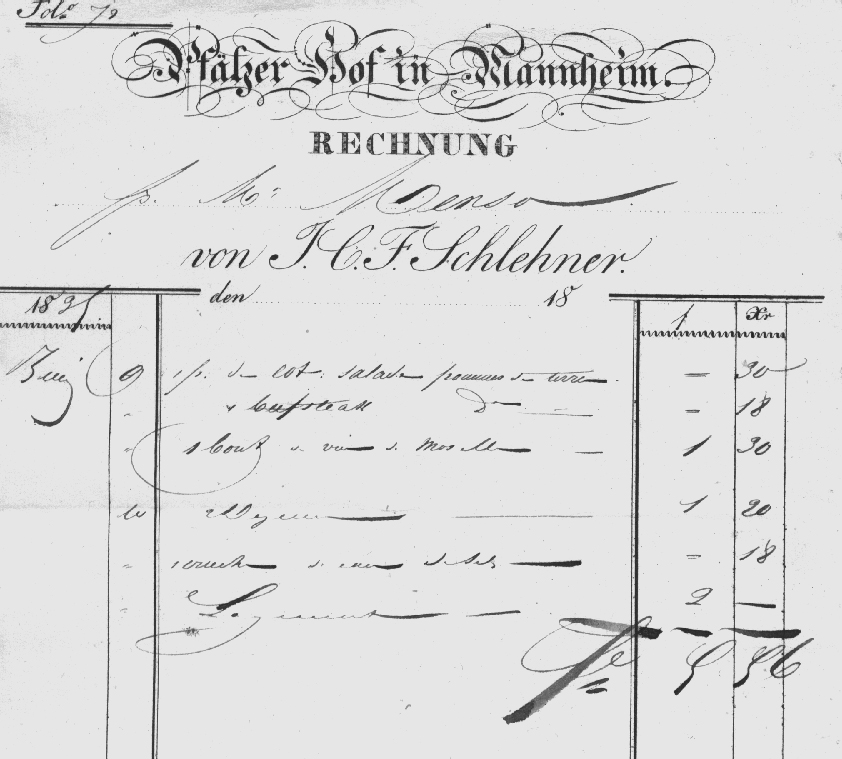 Fol: 72
Pfälzer Hof in Mannheim.
RECHNUNG
p. Mr: Menso
von J. C. F. Schlehner.
den 18
1825 f Xr
9 1 p. de cot: salade pommes de terre — 30
" 1 beefsteak do — 18
" 1 bout de vin de Moselle 1 30
10 2 Dejeuner 1 20
" 1 cruche de eau de Selz — 18
" Logement 2 —
5 56